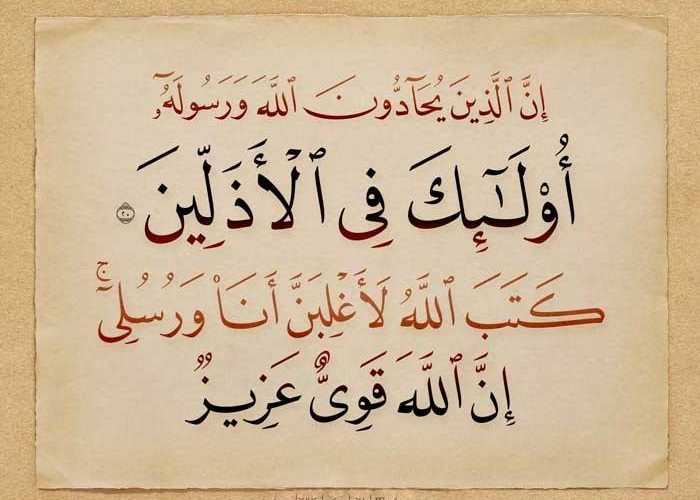 إِنَّ ٱلَّذِينَ يُحَآدُّونَ ٱللَّهَ وَرَسُولَهُۥٓ
أُو۟لَـٰٓئِكَ فِى ٱلْأَذَلِّينَ ۝٢٠
كَتَبَ ٱللَّهُ لَأَغْلِبَنَّ أَنَا۠ وَرُسُلِىٓ ۚ
إِنَّ ٱللَّهَ قَوِىٌّ عَزِيزٌ